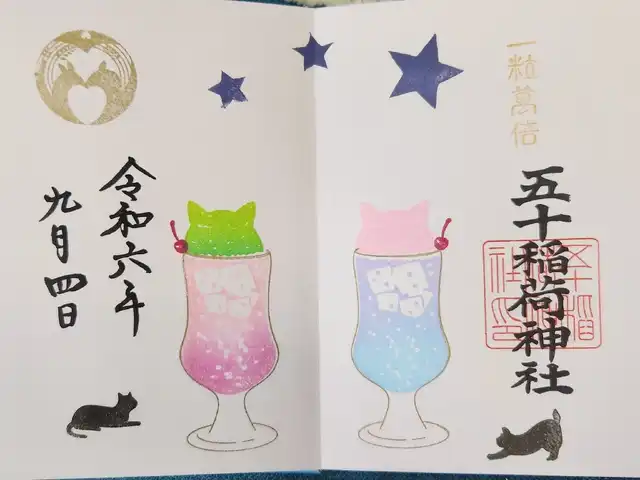 一粒萬倍
五十稲荷神社
令和六年
九月四日